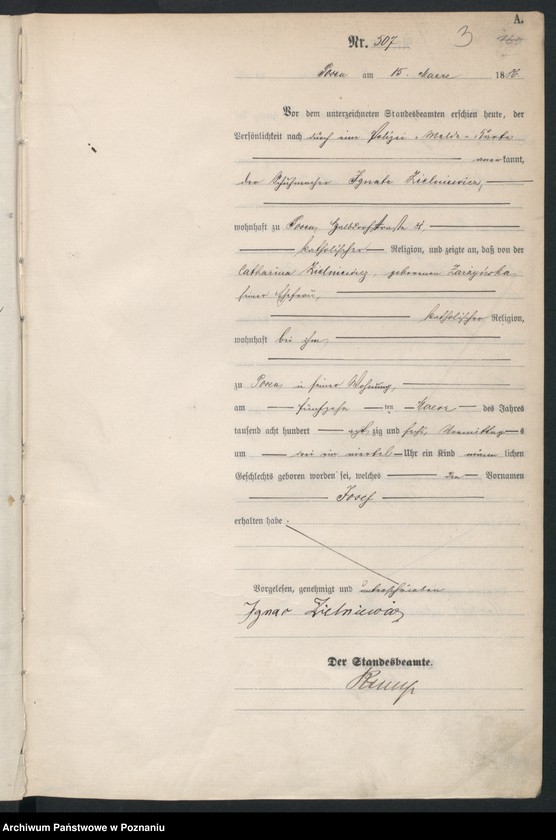 A.
Nr. 507
3
Posen am 15. Maerz 18 86.
Vor dem unterzeichneten Standesbeamten erschien heute, der
Persönlichkeit nach durch eine Polizei-Melde-Karte
anerkannt,
der Schuhmacher Ignatz Zielniewicz,
wohnhaft zu Posen, Halbdorfstraße 4,
katholischer Religion, und zeigte an, daß von der
Catharina Zielniewicz, geborenen
seiner Ehefrau,
katholischer Religion,
wohnhaft bei ihm,
zu Posen in seiner Wohnung,
am fünfzehn ten Maerz des Jahres
tausend acht hundert acht zig und sechs, Vormittags
um ein viertel Uhr ein Kind männlichen
Geschlechts geboren worden sei, welches den Vornamen
Josef
erhalten habe.
Vorgelesen, genehmigt und unterschrieben
Ignac Zielniewicz
Der Standesbeamte.
Archiwum Państwowe w Poznaniu